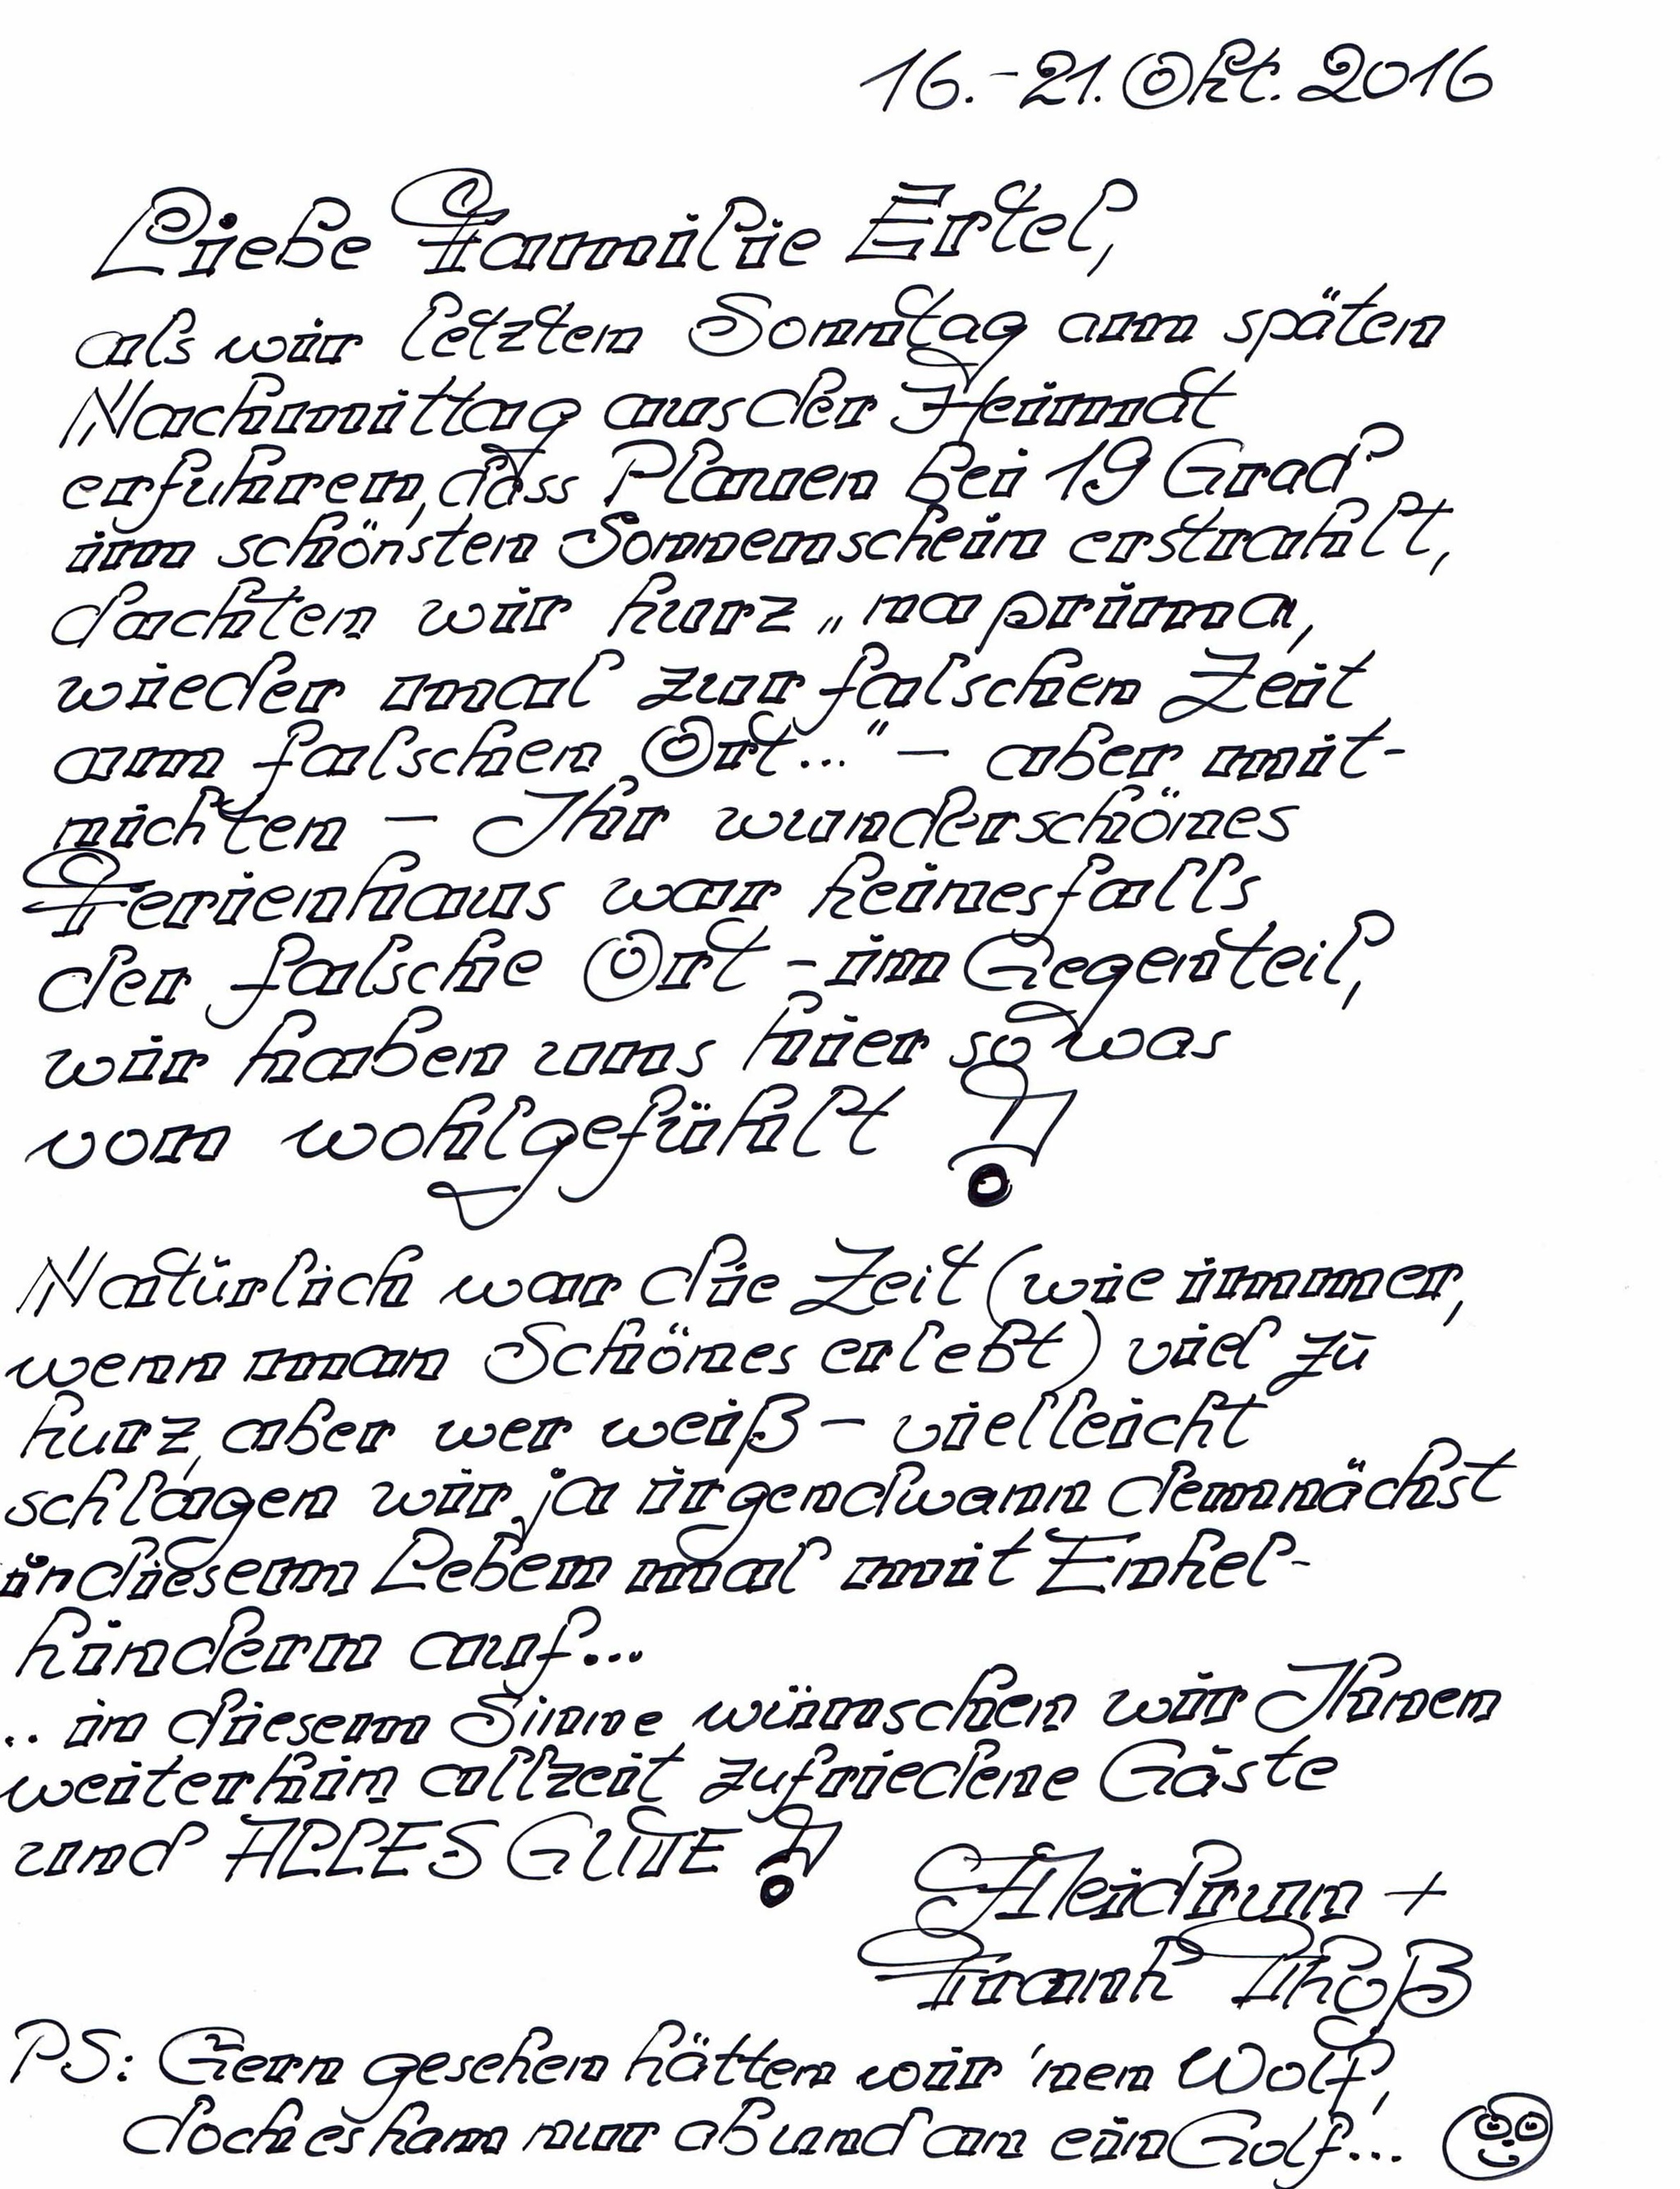 16.-21. Okt. 2016
Liebe Familie Ertel,
als wir letzten Sonntag am späten
Nachmittag aus der Heimat
erfuhren, dass Plauen bei 19 Grad
im schönsten Sonnenschein erstrahlt,
dachten wir kurz „na prima,
wieder mal zur falschen Zeit
am falschen Ort..." – aber mit-
nichten – Ihr wunderschönes
Ferienhaus war keinesfalls
der falsche Ort – im Gegenteil,
wir haben uns hier so was
von wohlgefühlt!
Natürlich war die Zeit (wie immer,
wenn man Schönes erlebt) viel zu
kurz, aber wer weiß – vielleicht
schlagen wir ja irgendwann demnächst
in diesem Leben mal mit Enkel-
kindern auf...
.. in diesem Sinne wünschen wir Ihnen
weiterhin allzeit zufriedene Gäste
und ALLES GUTE!
Heidrun +
Frank Thoß
PS: Gern gesehen hätten wir 'nen Wolf,
doch es kam nur ab und an ein Golf...